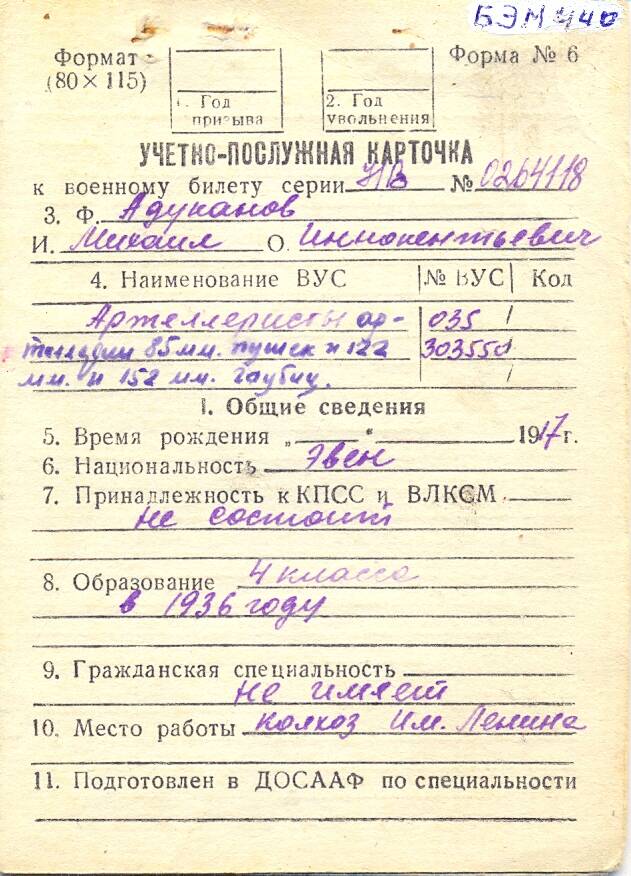 БЭМ 440
Формат
(80×115)
1. Год
призыва
2. Год
увольнения
Форма № 6
УЧЕТНО-ПОСЛУЖНАЯ КАРТОЧКА
к военному билету серии НВ № 0264118
3. Ф. Адуканов
И. Михаил О. Иннокентьевич
4. Наименование ВУС № ВУС Код
Артеллеристы ар- 035
тиллерии 85 мм. пушек и 122 303550
мм. и 152 мм. гаубиц.
I. Общие сведения
5. Время рождения „ “ 1917 г.
6. Национальность Эвен
7. Принадлежность к КПСС и ВЛКСМ
не состоит
8. Образование 4 класса
в 1936 году
9. Гражданская специальность
не имеет
10. Место работы колхоз им. Ленина
11. Подготовлен в ДОСААФ по специальности